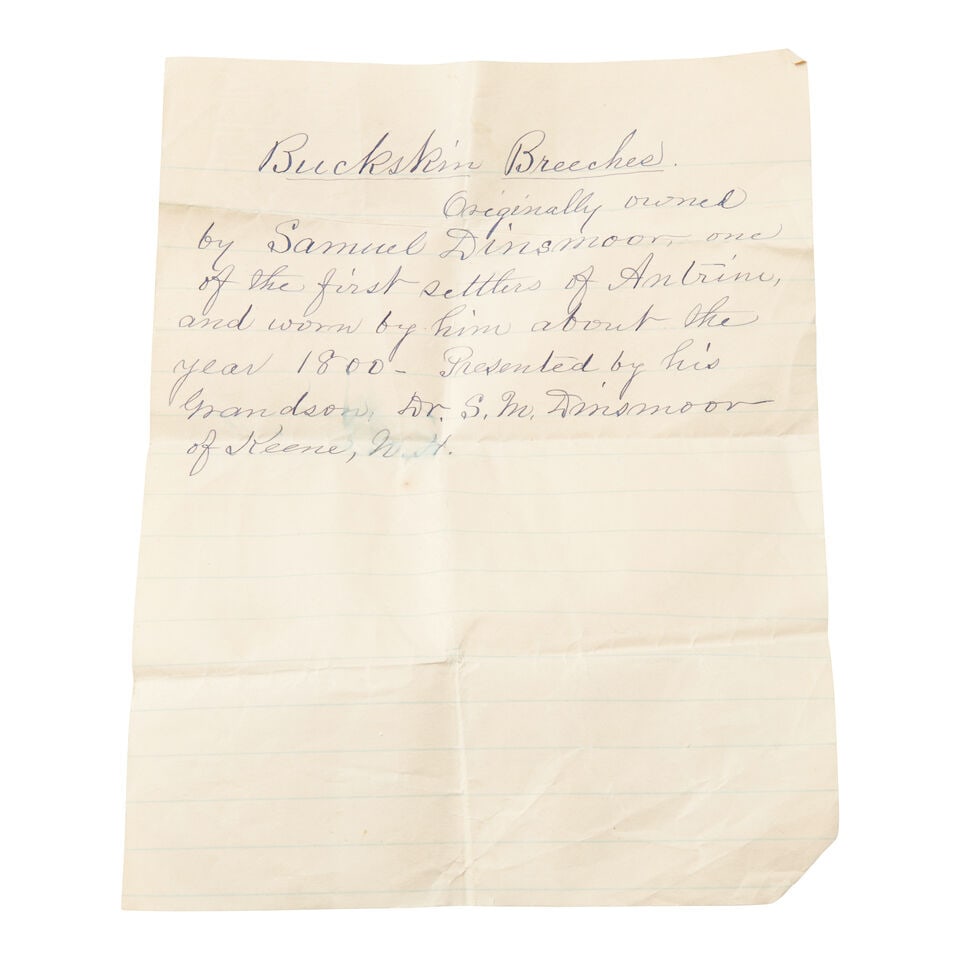 Buckskin Breeches.
Originally owned
by Samuel Dinsmoor, one
of the first settlers of Antrim,
and worn by him about the
year 1800 - Presented by his
Grandson, Dr. S. M. Dinsmoor
of Keene, N. H.